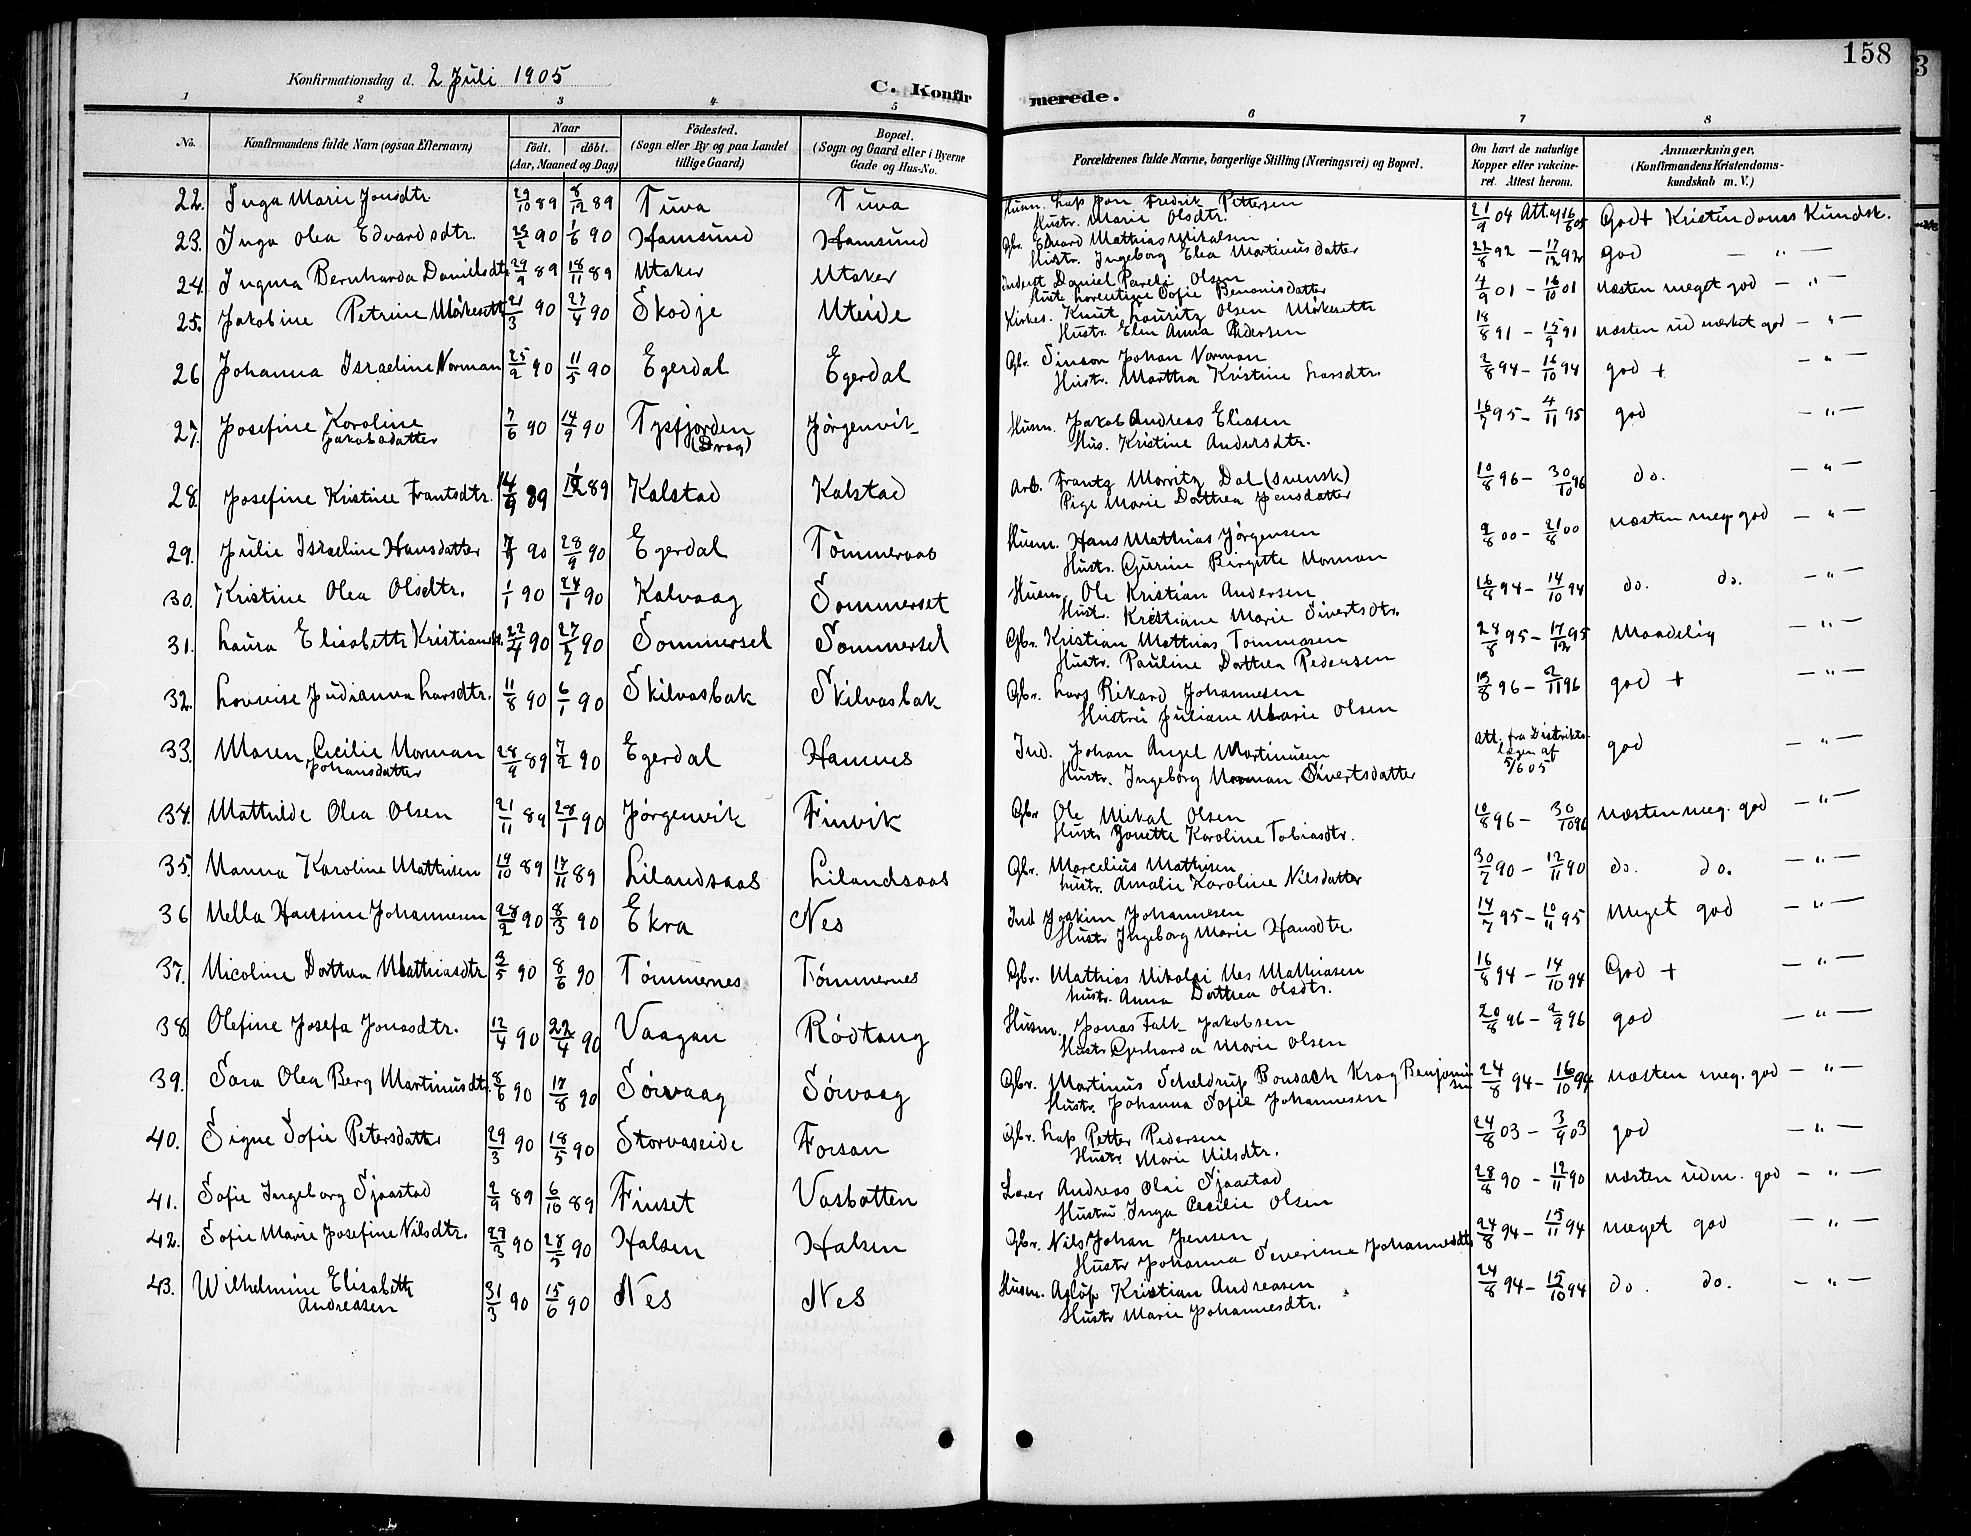 158
3
Konfirmationsdag d. 2 Juli 1905
C. Konfirmerede.
1 2 3 4 5 6 7 8
No. Konfirmandens fulde Navn (ogsaa Efternavn) Naar født. døbt. (Aar, Maaned og Dag) Fødested. (Sogn eller By og paa Landet tillige Gaard) Bopæl. (Sogn og Gaard eller i Byerne Gade og Hus-No. Forældrenes fulde Navne, borgerlige Stilling (Næringsvei) og Bopæl. Om havt de naturlige Kopper eller vakcineret. Attest herom. Anmærkninger. (Konfirmandens Kristendomskundskab m. V.)
22. Inga Marie Jonsdtr. 29/10 89 8/12 89 Tuva Tuva Husm. Lap Jon Fredrik Pettersen 21/9 04 Att. af 16/6 05 Godt Kristendoms Kundsk.
Hustr. Marie Olsdtr.
23. Inga Olea Edvardsdtr. 25/2 90 1/6 90 Hamsund Hamsund Gbr. Edvard Mathias Mikalsen 22/8 92 – 17/12 92 God – " –
Hustr. Ingeborg Elea Martinusdatter
24. Ingma Bernharda Danielsdtr. 29/9 89 18/11 89 Utaker Utaker Inderst Daniel Pareli Olsen 4/9 01 – 16/10 01 næsten meget god – " –
Hust. Lorentine Sofie Benonisdatter
25. Jakobine Petrine Mörkesett 21/3 90 27/4 90 Skodje Uteide Kirkes. Knut Lauritz Olsen Mörkeseth 18/8 91 – 15/9 91 næsten udmærket god – " –
Hustr. Elen Anna Pedersen
26 Johanna Israeline Norman 25/2 90 11/5 90 Egerdal Egerdal Gbr. Simson Johan Norman 2/8 94 – 16/10 94 god + – " –
Hustr. Martha Kristine Larsdtr.
27. Josefine Karoline 7/6 90 14/9 90 Tysfjorden Jørgenvik Husm. Jakob Andreas Eliasen 16/7 95 – 4/11 95 god – " –
Jakobsdatter (Drag) Hus. Kristine Andersdtr.
28. Josefine Kristine Frantsdtr. 14/9 89 1/12 89 Kalstad Kalstad Arb. Frantz Morritz Dal (svensk) 10/8 96 – 30/10 96 do. – " –
Pige Marie Dorthea Jensdatter
29. Julie Israeline Hansdatter 7/7 90 28/9 90 Egerdal Tømmeraas Husm. Hans Mathias Jørgensen 9/8 00 – 21/8 00 næsten meg. god – " –
Hustr. Gurine Birgitte Norman
30. Kristine Olea Olsdtr. 1/1 90 24/1 90 Kalvaag Sommerset Husm. Ole Kristian Andersen 16/8 94 – 14/10 94 do. do. – " –
Hust. Kristiane Marie Sivertsdtr.
31. Laura Elisabeth Kristiansdt. 22/4 90 27/7 90 Sommersel Sommersel Gbr. Kristian Mathias Tommasen 24/8 95 – 17/12 95 Maadelig – " –
Hustr. Pauline Dorthea Pedersen
32. Lovise Judianna Larsdtr. 11/8 90 6/1 90 Skilvasbak Skilvasbak Gbr. Lars Rikard Johannesen 13/8 96 – 2/11 96 god + – " –
Hustru Juliane Marie Olsen
33. Maren Cecilie Norman 28/9 89 7/2 90 Egerdal Hamnes Ind. Johan Angel Martinusen att. fra Distriktslægen af 5/6 05 god – " –
Johansdatter Hustr. Ingeborg Norman Sivertsdatter
34. Mathilde Olea Olsen 21/11 89 28/1 90 Jørgenvik Finvik Gbr Ole Mikal Olsen 10/8 96 – 30/10 96 næsten meg. god – " –
Hustr. Jonette Karoline Tobiasdtr.
35. Nanna Karoline Mathisen 14/10 89 17/11 89 Lilandsaas Lilandsaas Gbr. Marcelius Mathisen 30/7 90 – 12/11 90 do. do. – " –
hustr. Amalie Karoline Nilsdatter
36 Nella Hansine Johannesen 28/2 90 8/3 90 Ekra Nes Ind Joakim Johannesen 14/7 95 – 10/11 95 Meget god – " –
Hustr Ingeborg Marie Hansdtr.
37. Nicoline Dorthea Mathiasdtr 3/5 90 8/6 90 Tømmernes Tømmernes Gbr. Mathias Nikolai Nes Mathiasen 16/8 94 – 14/10 94 God + – " –
hustr. Anna Dorthea Olsdtr.
38 Olefine Josefa Jonasdtr. 12/4 90 22/4 90 Vaagan Rödtang Husm. Jonas Falk Jakobsen 20/8 96 – 2/9 96 god – " –
Hustr Gerharda Marie Olsen
39. Sara Olea Berg Martinusdtr. 8/6 90 17/8 90 Sörvaag Sörvaag Gbr. Martinus Scheldrup Bonsach Krog Benjaminsen 24/8 94 – 16/10 94 næsten meg. god – " –
Hustr. Johanna Sofie Johannesen
40. Signe Sofie Petersdatter 29/3 90 18/5 90 Storvaseide Forsan Gbr. Lap Petter Pedersen 24/8 03 – 3/9 03 god – " –
Hustr. Marie Nilsdtr.
41. Sofie Ingeborg Sjaastad 2/9 89 6/10 89 Finset Vasbotten Lærer Andreas Olai Sjaastad 28/8 90 – 12/11 90 næsten udm. god – " –
Hustru Inga Cecilie Olsen
42. Sofie Marie Josefine Nilsdtr. 29/3 90 28/5 90 Halsen Halsen Gbr. Nils Johan Jensen 24/8 94 – 15/11 94 meget god – " –
Hustr Johanna Severine Johannesdtr
43. Wilhelmine Elisabeth 31/3 90 15/6 90 Nes Nes Husm. Asløp Kristian Andreasen 24/8 94 – 15/10 94 do. do. – " –
Andreasen Hustr Marie Johannesdtr.